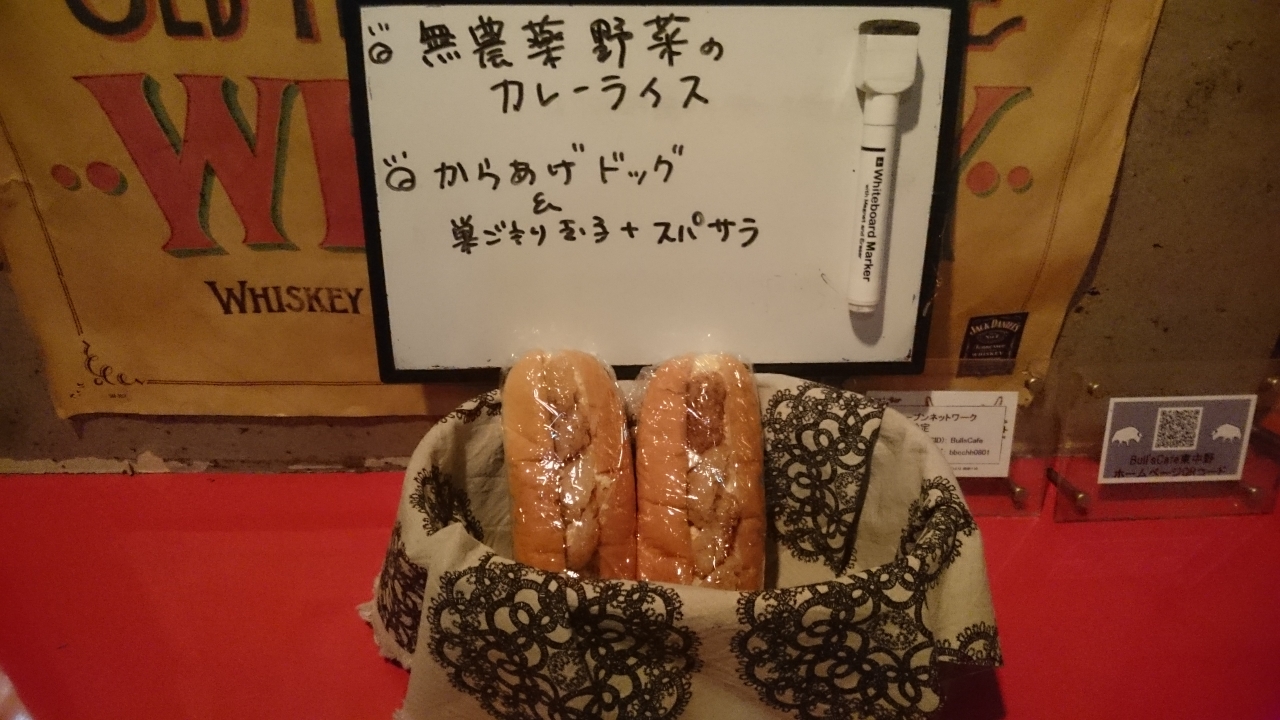 無農薬野菜の
カレーライス
からあげドッグ
&
巣ごもり玉子+スパサラ
Whiteboard Marker
with Magnet and Eraser
WHISKEY
JACK DANIEL'S
ープンネットワーク
BullsCafe
Bull'sCafe東中野
ホームページQRコード